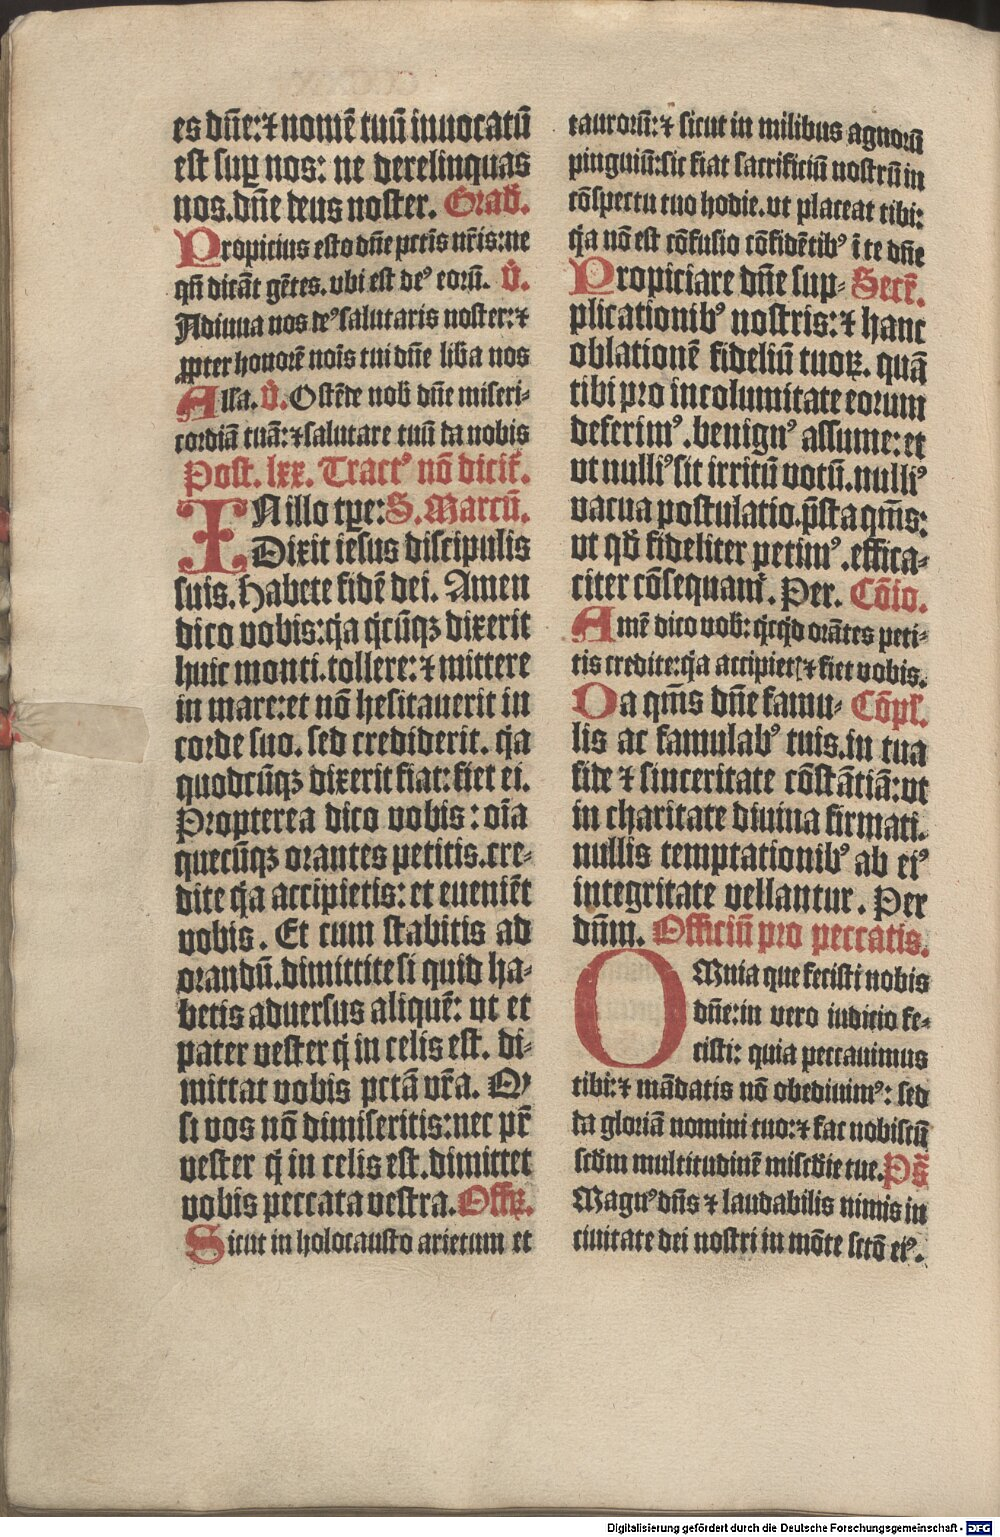 es dñe: ⁊ nomē tuū inuocatū
est sup nos: ne derelinquas
nos. dñe deus noster. Grad̄.
Propicius esto dñe pctīs nr̄is: ne
qñ dicāt gētes. vbi est deꝰ eorū. V̄.
Adiuua nos deꝰ salutaris noster: ⁊
ꝓpter honorē noīs tui dñe lib̄a nos
Alla. V̄. Ostēde nob̄ dñe miseri-
cordiā tuā: ⁊ salutare tuū da nobis
Post. lxx. Tractꝰ nō dicit̄.
IN illo tꝑe: S. Marcū.
Dixit iesus discipulis
suis. Habete fidē dei. Amen
dico vobis: qꝛa qicūqꝫ dixerit
huic monti. tollere: ⁊ mittere
in mare: et nō hesitauerit in
corde suo. sed crediderit. qꝛa
quodcūqꝫ dixerit fiat: fiet ei.
Propterea dico vobis: oīa
quecūqꝫ orantes petitis. cre-
dite qꝛa accipietis: et eueniēt
vobis. Et cum stabitis ad
orandū. dimittite si quid ha-
betis aduersus aliquē: vt et
pater vester qi in celis est. di-
mittat vobis pctā vr̄a. Qꝙ
si vos nō dimiseritis: nec pr̄
vester qi in celis est. dimittet
vobis peccata vestra. Offꝝ.
Sicut in holocausto arietum et
taurorū: ⁊ sicut in milibus agnorū
pinguiū: sic fiat sacrificiū nostrū in
cōspectu tuo hodie. vt placeat tibi:
qꝛa nō est cōfusio cōfidētibꝰ ī te dñe
Propiciare dñe sup- Secr̄.
plicationibꝰ nostris: ⁊ hanc
oblationē fideliū tuoꝝ. quā
tibi pro incolumitate eorum
deferimꝰ. benignꝰ assume: et
vt nulliꝰ sit irritū votū. nulliꝰ
vacua postulatio. p̄sta qm̄s:
vt qd̄ fideliter petimꝰ. effica-
citer cōsequam̄. Per. Cōio.
Amē dico vob̄: qicqid orātes peti-
tis credite: qꝛa accipietꝭ ⁊ fiet vobis.
Da qm̄s dñe famu- Cōpl̄.
lis ac famulabꝰ tuis. in tua
fide ⁊ sinceritate cōstātiā: vt
in charitate diuina firmati.
nullis temptationibꝰ ab eiꝰ
integritate vellantur. Per
dn̄m. Officiū pro peccatis.
OMnia que fecisti nobis
dñe: in vero iudicio fe-
cisti: quia peccauimus
tibi: ⁊ mādatis nō obediuimꝰ: sed
da gloriā nomini tuo: ⁊ fac nobiscū
scd̄m multitudinē misc̄die tue. Ps̄
Magnꝰ dñs ⁊ laudabilis nimis in
ciuitate dei nostri in mōte sctō eiꝰ.
Digitalisierung gefördert durch die Deutsche Forschungsgemeinschaft - DFG